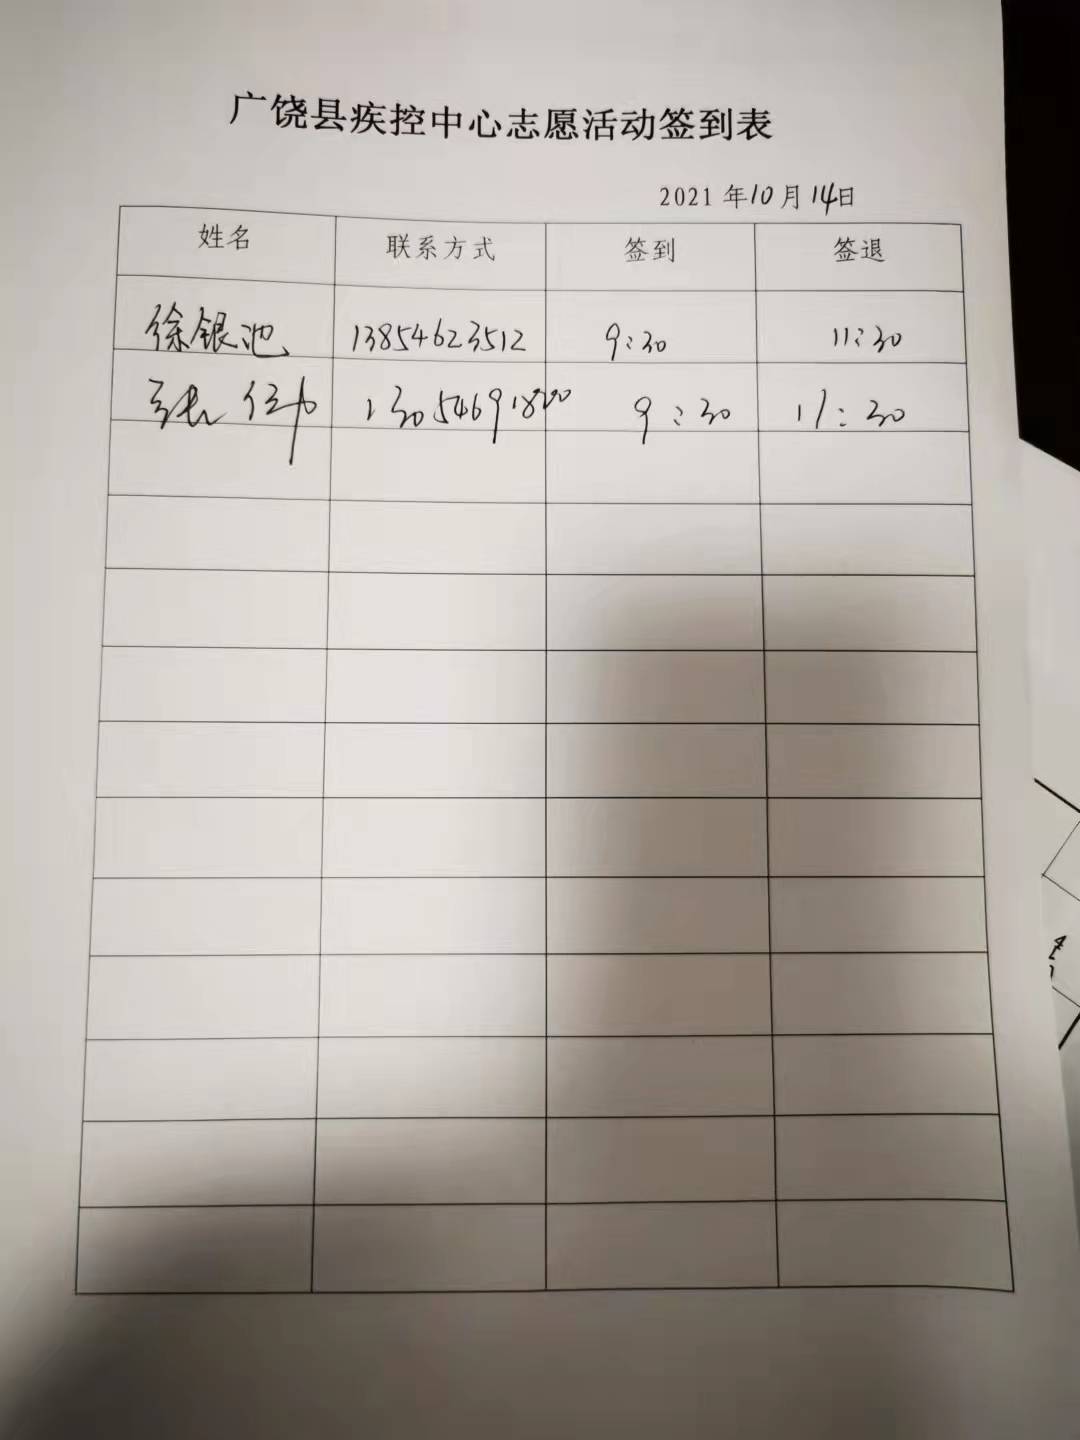 广饶县疾控中心志愿活动签到表
2021 年 10 月 14 日
姓名 联系方式 签到 签退
徐银池 13854623512 9:30 11:30
张 9:30 11:30